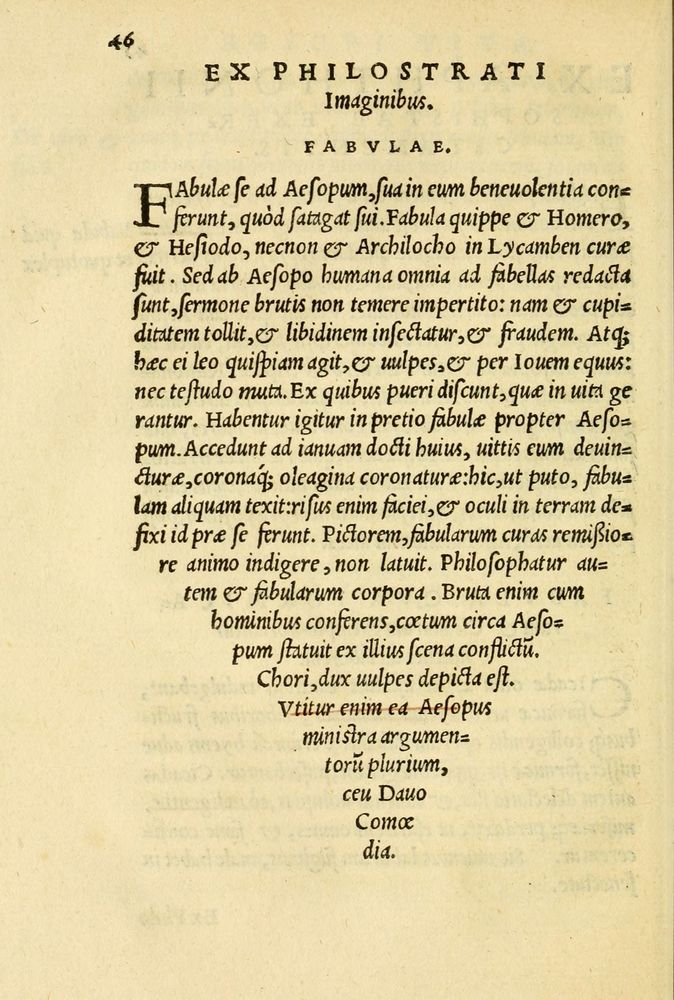 46
EX PHILOSTRATI
Imaginibus.
FABVLAE.
FAbulæ se ad Aesopum, sua in eum beneuolentia con=
ferunt, quòd satagat sui. Fabula quippe & Homero,
& Hesiodo, necnon & Archilocho in Lycamben curæ
fuit. Sed ab Aesopo humana omnia ad fabellas redacta
sunt, sermone brutis non temere impertito: nam & cupi=
ditatem tollit, & libidinem insectatur, & fraudem. Atq;
hæc ei leo quispiam agit, & uulpes, & per Iouem equus:
nec testudo muta. Ex quibus pueri discunt, quæ in uita ge
rantur. Habentur igitur in pretio fabulæ propter Aeso=
pum. Accedunt ad ianuam docti huius, uittis eum deuin=
cturæ, coronaq́; oleagina coronaturæ: hic, ut puto, fabu=
lam aliquam texit: risus enim faciei, & oculi in terram de=
fixi id præ se ferunt. Pictorem, fabularum curas remißio=
re animo indigere, non latuit. Philosophatur au=
tem & fabularum corpora. Bruta enim cum
hominibus conferens, cœtum circa Aeso=
pum statuit ex illius scena conflictũ.
Chori, dux uulpes depicta est.
Vtitur enim ea Aesopus
ministra argumen=
torũ plurium,
ceu Dauo
Comœ
dia.